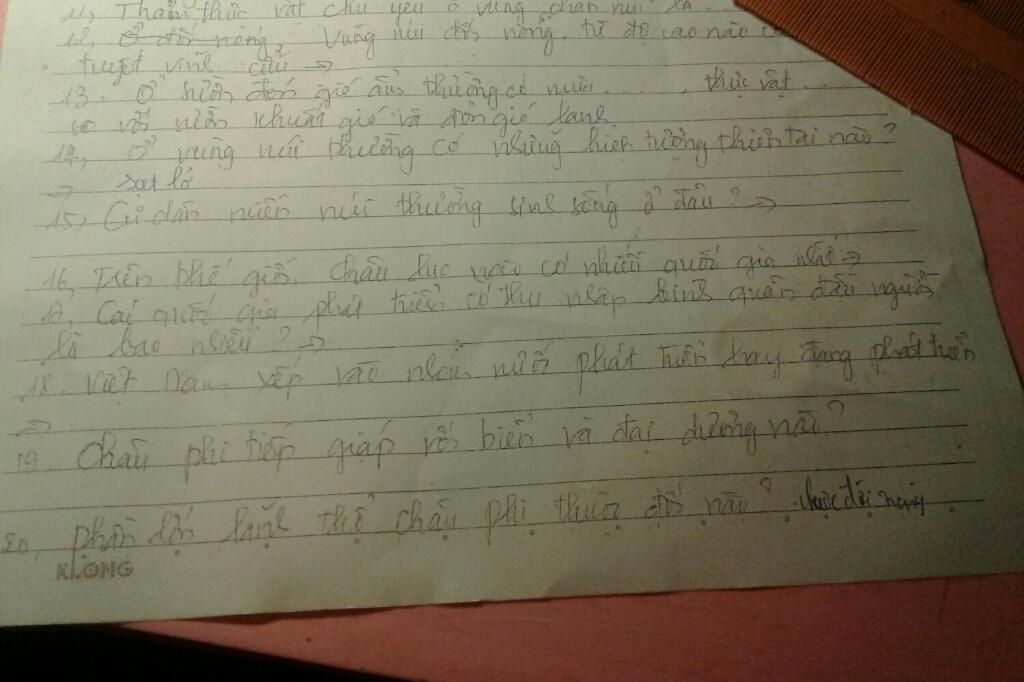 11, Thảm thực vật chủ yếu ở vùng chân núi là
12, Ở đới nóng. Vùng núi đới nóng. từ độ cao nào có
tuyết vĩnh cửu →
13. Ở sườn đón gió ẩm thường có mưa ......., thực vật ...
so với sườn khuất gió và đón gió lạnh
14, Ở vùng núi thường có những hiện tượng thiên tai nào?
→ sạt lở
15, Cư dân miền núi thường sinh sống ở đâu? →
16, Trên thế giới. Châu lục nào có nhiều quốc gia nhất →
17. Các quốc gia phát triển có thu nhập bình quân đầu người
là bao nhiêu? →
18. Việt Nam xếp vào nhóm nước phát triển hay đang phát triển
→
19. Châu phi tiếp giáp với biển và đại dương nào?
20, phần lớn lãnh thổ châu phi thuộc đới nào? thuộc đới nóng
KLONG